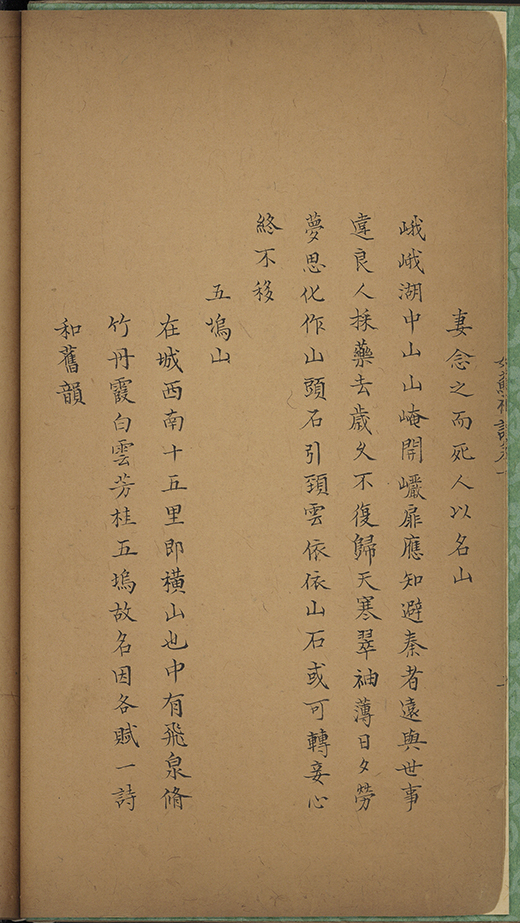 妻念之而死人以名山
峨峨湖中山山崦開巖扉應知避秦者遠與世事
違良人採藥去歲久不復歸天寒翠袖薄日夕勞
夢思化作山頭石引頸雲依依山石或可轉妾心
終不移
五塢山
在城西南十五里即橫山也中有飛泉脩
竹丹霞白雲芳桂五塢故名因各賦一詩
和舊韻